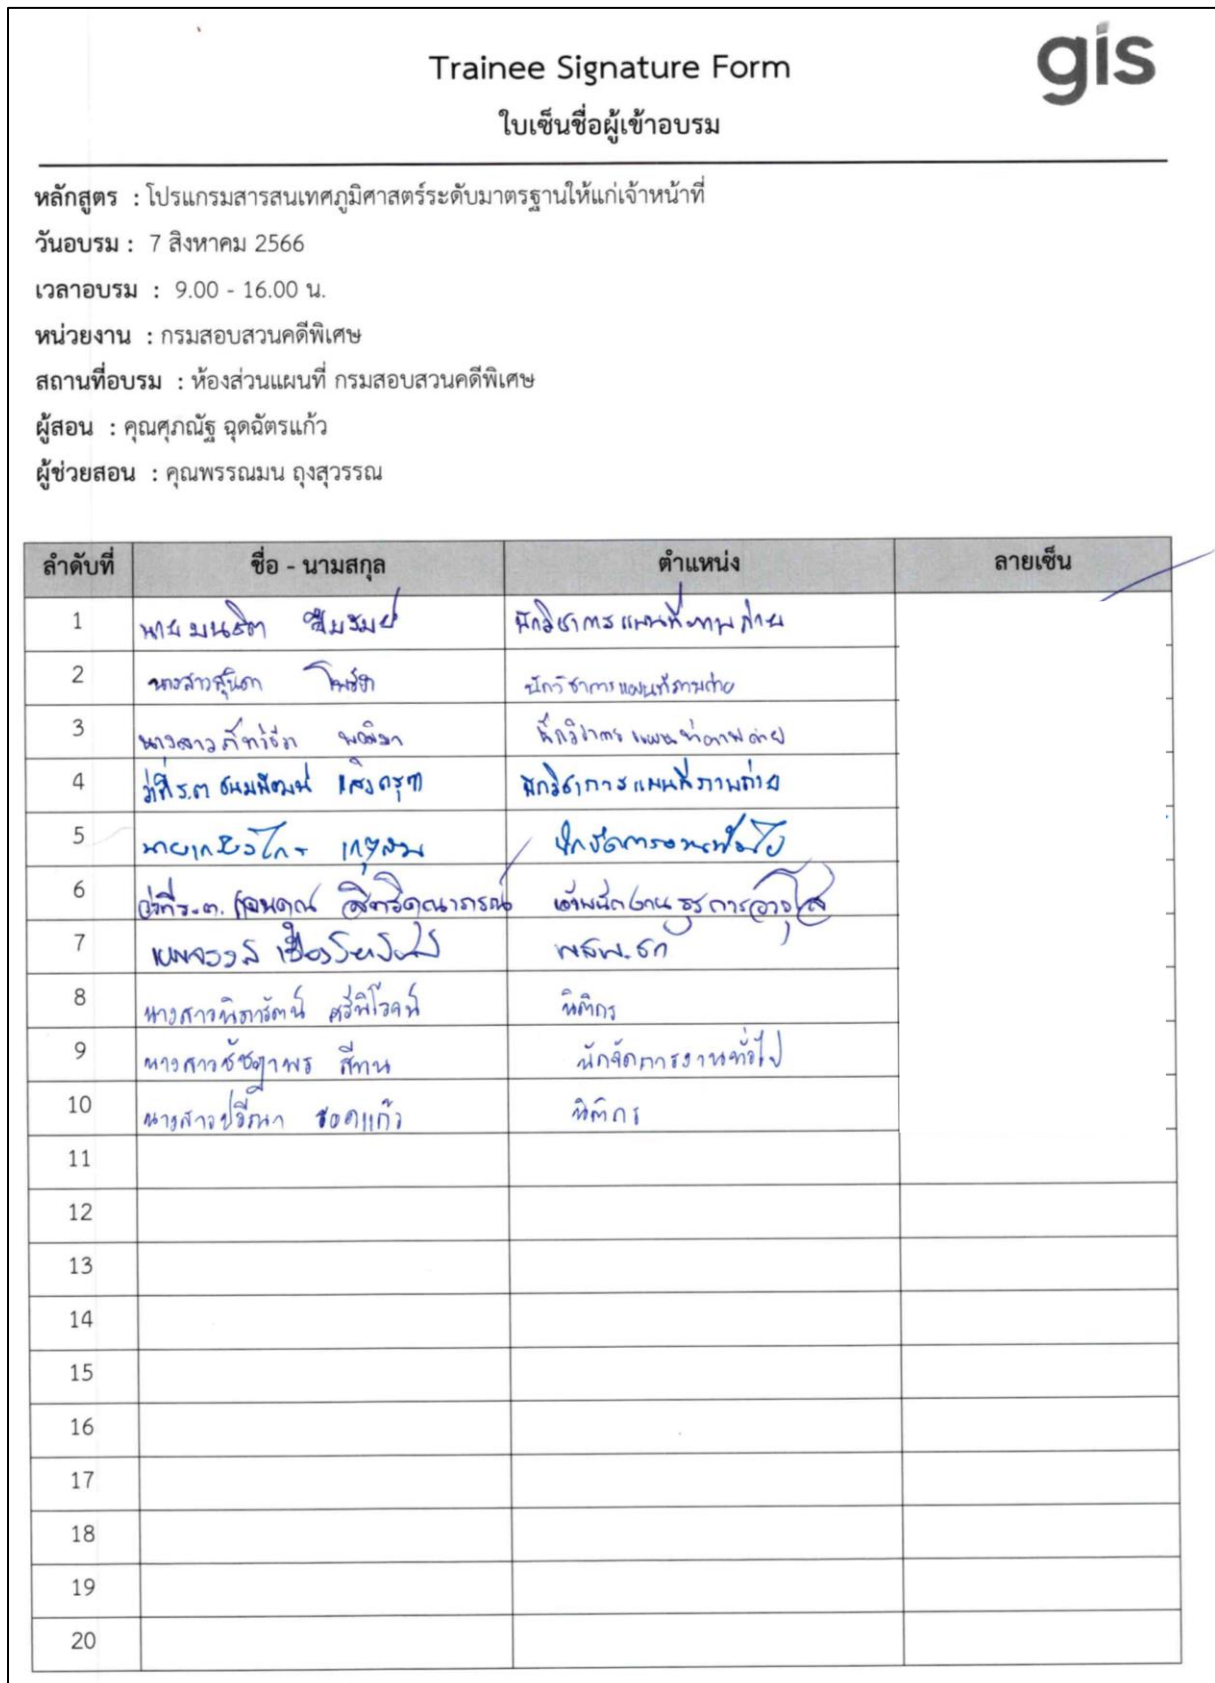 gis
Trainee Signature Form
ใบเซ็นชื่อผู้เข้าอบรม
หลักสูตร : โปรแกรมสารสนเทศภูมิศาสตร์ระดับมาตรฐานให้แก่เจ้าหน้าที่
วันอบรม : 7 สิงหาคม 2566
เวลาอบรม : 9.00 - 16.00 น.
หน่วยงาน : กรมสอบสวนคดีพิเศษ
สถานที่อบรม : ห้องส่วนแผนที่ กรมสอบสวนคดีพิเศษ
ผู้สอน : คุณศุภณัฐ ฉุดฉัตรแก้ว
ผู้ช่วยสอน : คุณพรรณมน ถุงสุวรรณ
ลำดับที่ ชื่อ - นามสกุล ตำแหน่ง ลายเซ็น
1 นาย นักวิชาการแผนที่ภาพถ่าย
2 นางสาวสุนิดา นักวิชาการแผนที่ภาพถ่าย
3 นางสาว นักวิชาการแผนที่ภาพถ่าย
4 ว่าที่ ร.ต. นักวิชาการแผนที่ภาพถ่าย
5 นาย นักจัดการงานทั่วไป
6 ว่าที่ ร.ต. สิทธิคุณาภรณ์ เจ้าพนักงานธุรการอาวุโส
7
8 นางสาวพิดารัตน์ ศรีพิโรจน์ นิติกร
9 นางสาวชัชฎาพร สีทน นักจัดการงานทั่วไป
10 นางสาวปรีณา รอดแก้ว นิติกร
11
12
13
14
15
16
17
18
19
20